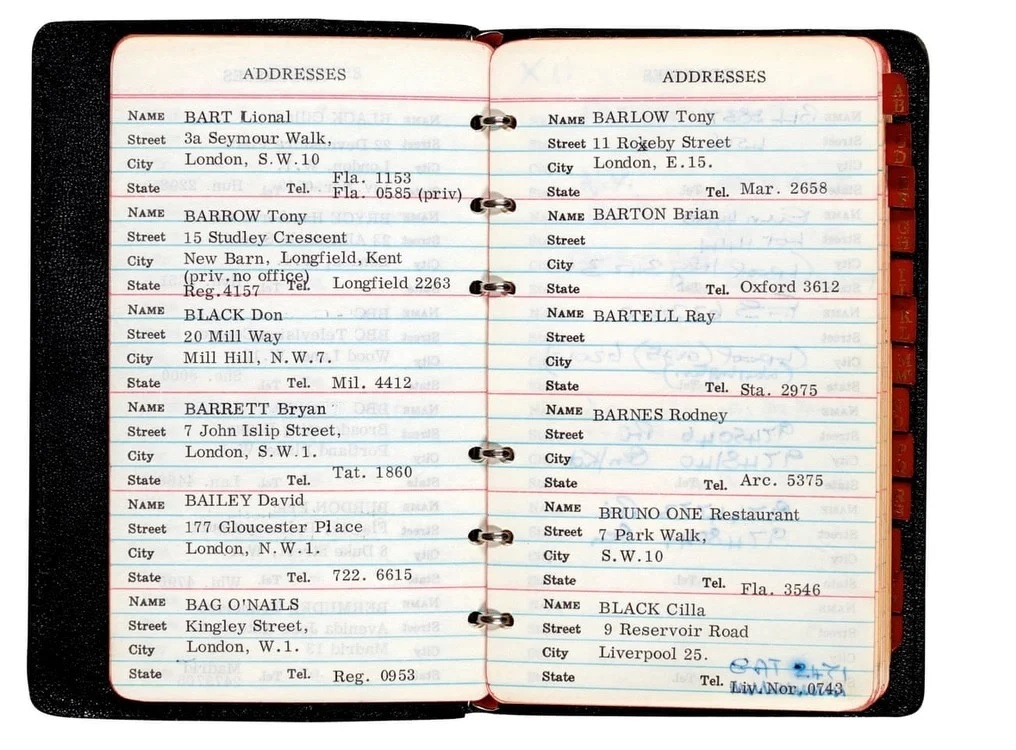 ADDRESSES
NAME BART Lional
Street 3a Seymour Walk,
City London, S.W.10
Fla. 1153
State Tel. Fla. 0585 (priv)
NAME BARROW Tony
Street 15 Studley Crescent
City New Barn, Longfield, Kent
(priv.no office)
State Reg.4157 Tel. Longfield 2263
NAME BLACK Don
Street 20 Mill Way
City Mill Hill, N.W.7.
State Tel. Mil. 4412
NAME BARRETT Bryan
Street 7 John Islip Street,
City London, S.W.1.
State Tel. Tat. 1860
NAME BAILEY David
Street 177 Gloucester Place
City London, N.W.1.
State Tel. 722. 6615
NAME BAG O'NAILS
Street Kingley Street,
City London, W.1.
State Tel. Reg. 0953
ADDRESSES
NAME BARLOW Tony
Street 11 Rokeby Street
City London, E.15.
State Tel. Mar. 2658
NAME BARTON Brian
Street
City
State Tel. Oxford 3612
NAME BARTELL Ray
Street
City
State Tel. Sta. 2975
NAME BARNES Rodney
Street
City
State Tel. Arc. 5375
NAME BRUNO ONE Restaurant
Street 7 Park Walk,
City S.W.10
State Tel. Fla. 3546
NAME BLACK Cilla
Street 9 Reservoir Road
City Liverpool 25.
State Tel. Liv. Nor. 0743
A
B